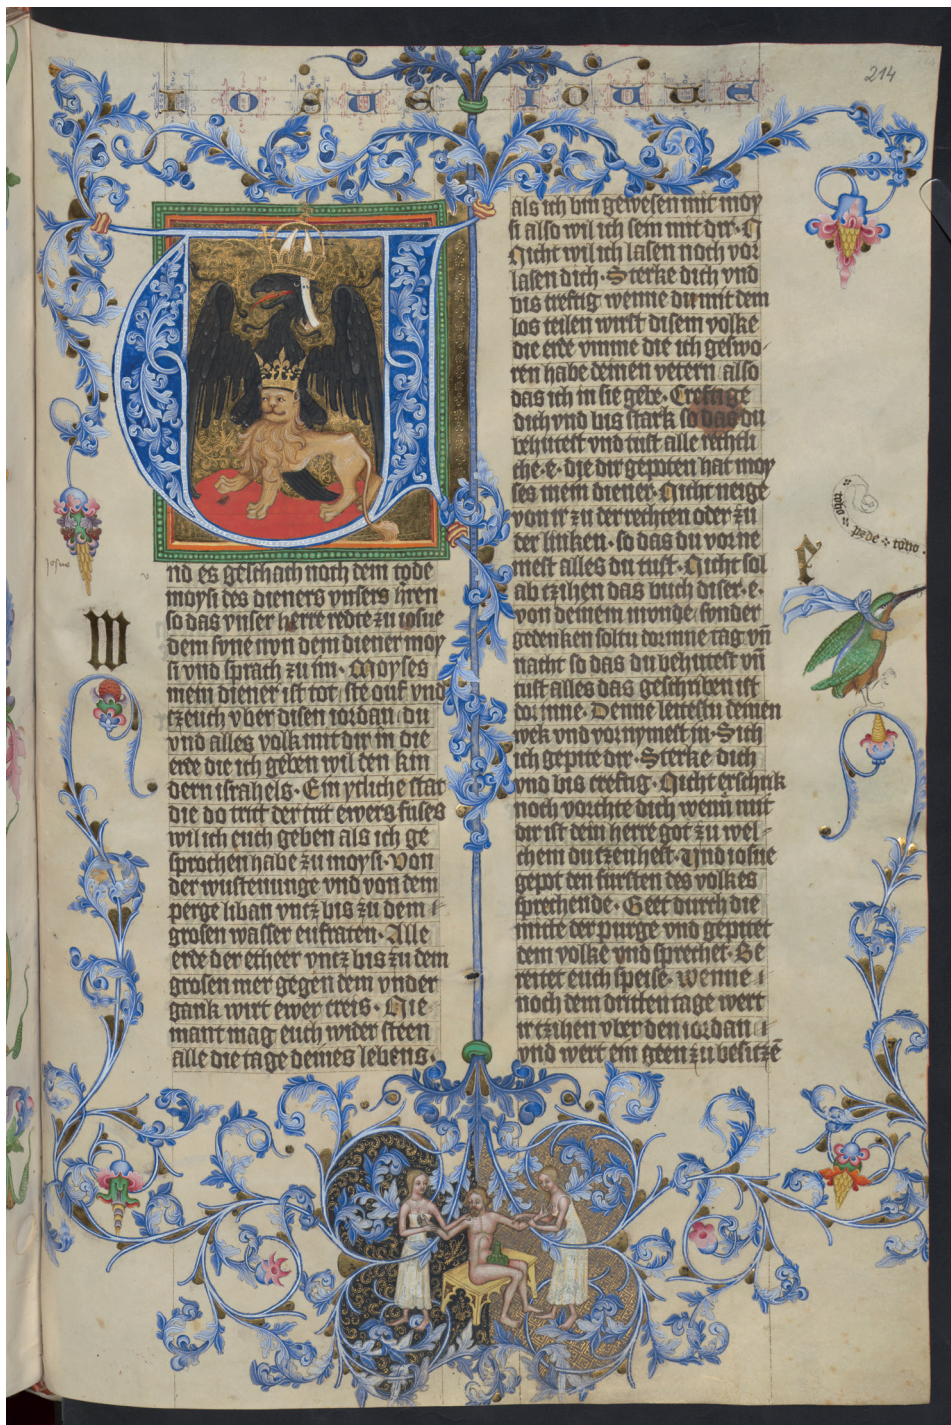 214
IOSUE
IOSUE
josue
nd es geschach noch dem tode
moysi des dieners vnsers hren
so das vnser herre redte zu iosue
dem sone nvn dem diener moy
si vnd sprach zu im · Moyses
mein diener ist tot · ste ouf vnd
czeuch vber disen iordan du
vnd alles volk mit dir in die
erde die ich geben wil den kin
dern israhels · Ein ytliche stat
die do trit der trit ewers fuses
wil ich euch geben als ich ge
sprochen habe zu moysi · Von
der wustenunge vnd von dem
perge liban vntz bis zu dem
grosen wasser eufraten · Alle
erde der etheer vntz bis zu dem
grosen mer gegen dem vnder
gank wirt ewer creis · Nie
mant mag euch wider steen
alle die tage deines lebens ·
als ich bin gewesen mit moy
si also wil ich sein mit dir ·
Nicht wil ich lasen noch vor
lasen dich · Sterke dich vnd
bis creftig wenne du mit dem
los teilen wirst disem volke
die erde vmme die ich geswo
ren habe deinen vetern also
das ich in sie gebe · Creftige
dich vnd bis stark so das du
behutest vnd tust alle rechtli
che · e · die dir gepoten hat moy
ses mein diener · Nicht neige
von ir zu der rechten oder zu
der linken · so das du vorne
mest alles du tust · Nicht sol
abtzihen das buch diser · e ·
von deinem munde sonder
gedenken soltu dorinne tag vn̄
nacht so das du behutest vn̄
tust alles das geschriben ist
dorinne · Denne leitestu deinen
wek vnd vornymest in · Sich
ich gepite dir · Sterke dich
vnd bis creftig · Nicht erschrik
noch vorchte dich wenn mit
dir ist dein herre got zu wel
chem du czeuhest · Vnd iosue
gepot den fursten des volkes
sprechende · Geet durch die
mitte der purge vnd gepitet
dem volke vnd sprechet · Be
reitet euch speise · wenne
noch dem dritten tage wert
ir tzihen vber den iordan
vnd wert ein geen zu besitzē
W
e
toho
pzde
toho